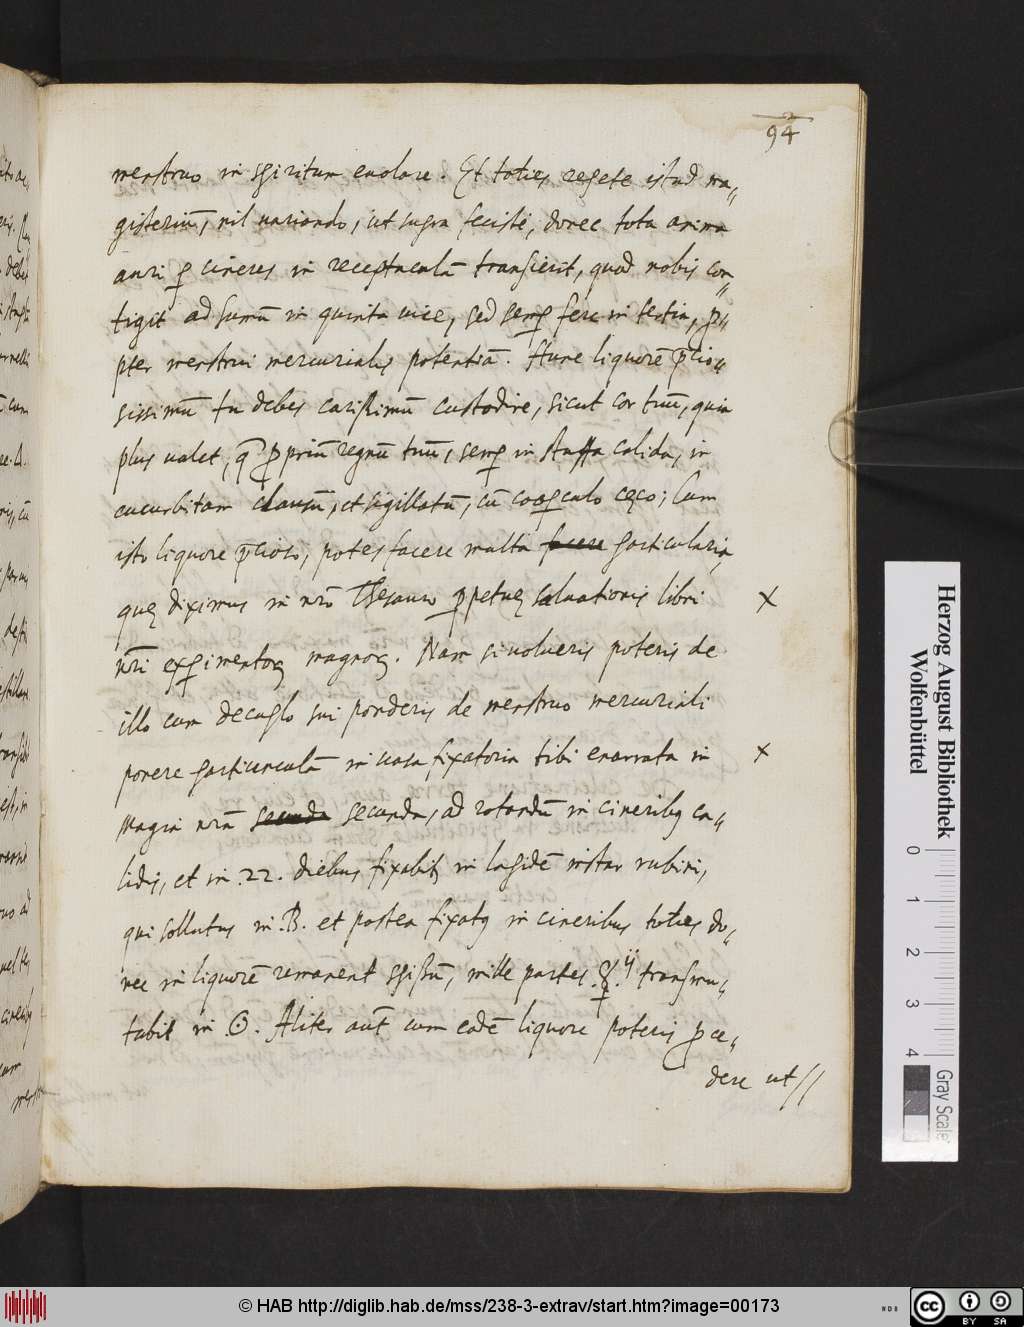 94
menstruo in spiritum euolare. Et toties repete istud ma„
gisteriū, nil uariando, ut supra fecisti, donec tota anima
auri ꝑ cineres in receptaculū transierit, quod nobis con„
tigit ad sumū in quinta uice, sed semꝑ fere in tertia, ꝓ„
pter menstrui mercurialis potentiā. Hunc liquorē p̄tio„
sissimū tu debes carissimū custodire, sicut cor tuū, quia
plus ualet, q̄ ꝓpriū regnū tuū, semꝑ in stuffa calida, in
cucurbitam clausū, et sigillatū, cū cooꝑculo cęco; Cum
isto liquore p̄tioso, potes facere multa facere particularia,
quę diximus in nr̄o Thesauro ꝑpetuę saluationis libri
nr̄i exꝑimentoꝝ magnoꝝ. Nam si uolueris poteris de
illo cum decuplo sui ponderis de menstruo mercuriali
ponere particulam in uasa fixatoria tibi enarrata in
magia nr̄a secunda secunda, ad rotandū in cineribꝫ ca„
lidis, et in .22. diebus fixabit in lapidē instar rubini,
qui sollutus in .B. et postea fixatꝫ in cineribus toties do„
nec in liquorē remaneat spissū, mille partes ☿ ij transmu„
tabit in ☉. Aliter aūt cum eodē liquore poteris ꝓce„
dere ut //
X
X
Herzog August Bibliothek
Wolfenbüttel
0 1 2 3 4
Gray Scale
© HAB http://diglib.hab.de/mss/238-3-extrav/start.htm?image=00173
cc BY SA